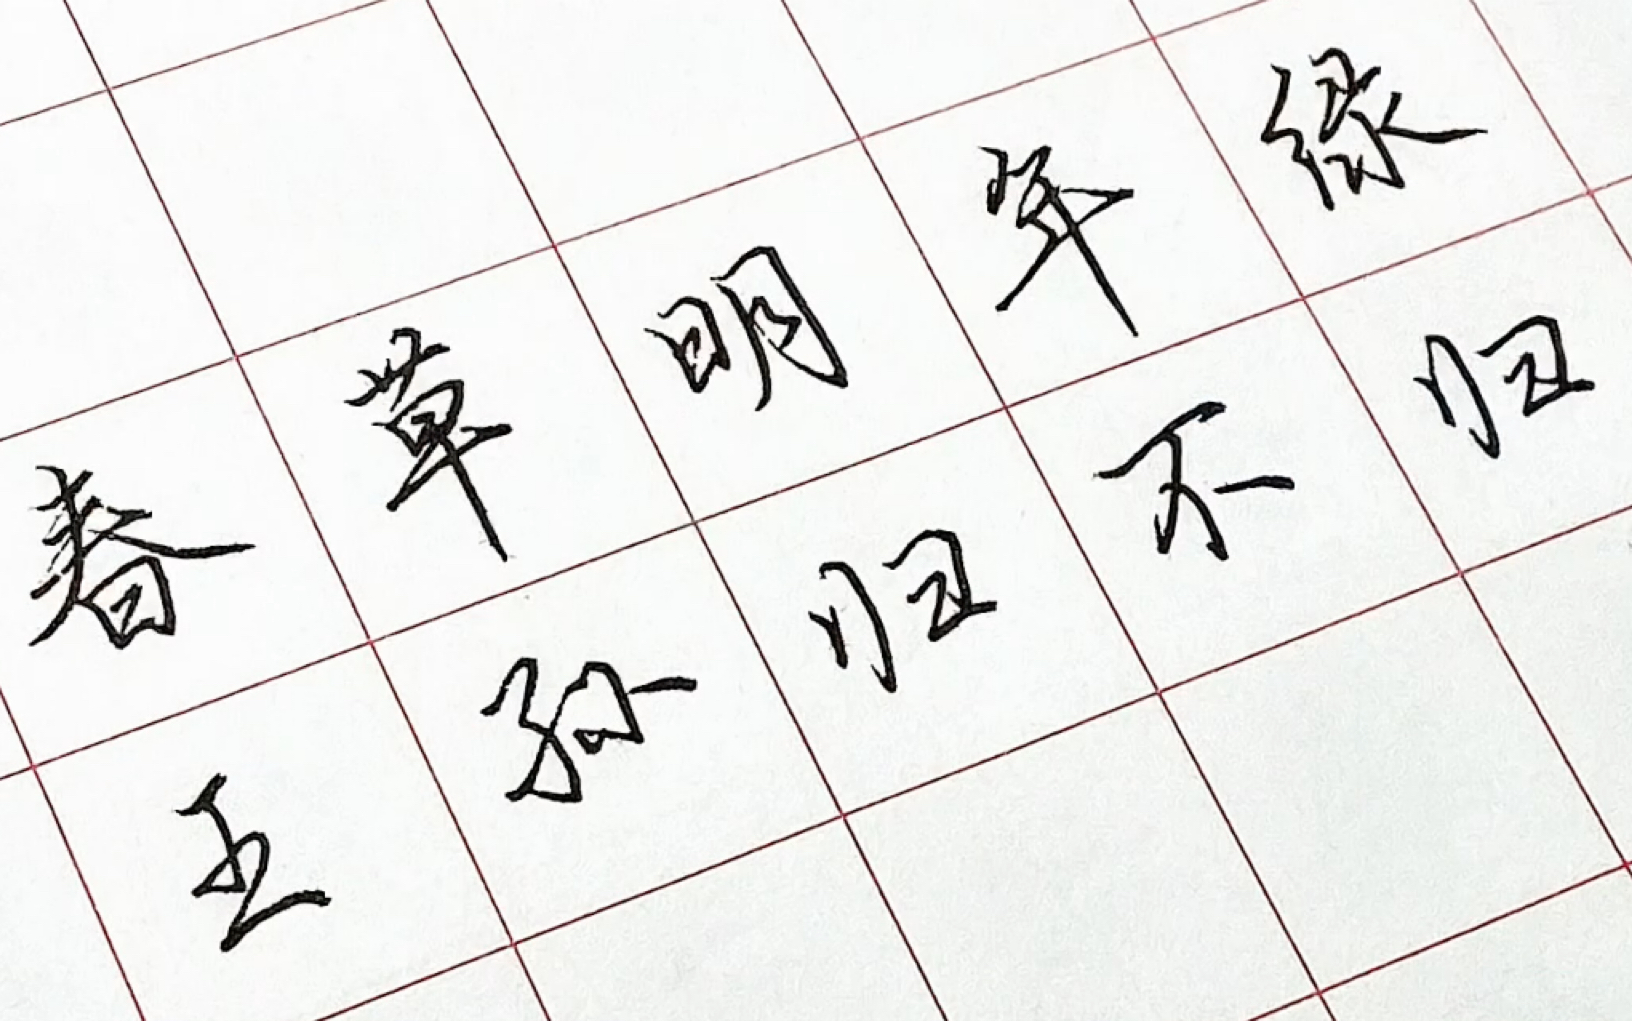 春草明年绿
王孙归不归